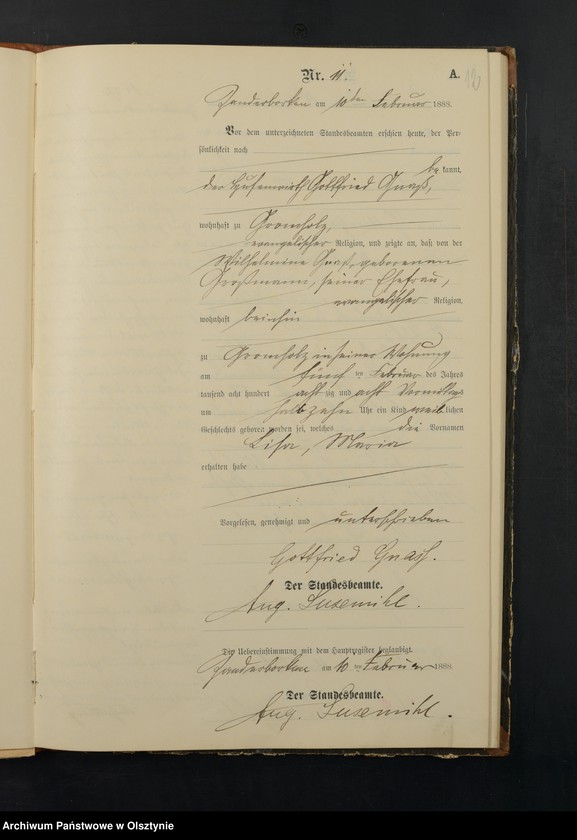 Nr. 11.
A.
am 10ten Februar 1888.
Vor dem unterzeichneten Standesbeamten erschien heute, der Per-
sönlichkeit nach
be kannt,
der Hufenwirth Gottfried Gnaß,
wohnhaft zu Gronholz,
evangelischer Religion, und zeigte an, daß von der
Wilhelmine Gnaß, geborenen
Großmann, seiner Ehefrau,
evangelischer Religion,
wohnhaft bei ihm
zu Gronholz in seiner Wohnung
am fünf ten Februar des Jahres
tausend acht hundert acht zig und acht Vormittags
um halb zehn Uhr ein Kind weib lichen
Geschlechts geboren worden sei, welches die Vornamen
Lisa, Maria
erhalten habe
Vorgelesen, genehmigt und unterschrieben
Gottfried Gnaß.
Der Standesbeamte.
Aug. Susemihl.
Die Uebereinstimmung mit dem Hauptregister beglaubigt.
am 10 ten Februar 1888.
Der Standesbeamte.
Aug. Susemihl.
Archiwum Państwowe w Olsztynie